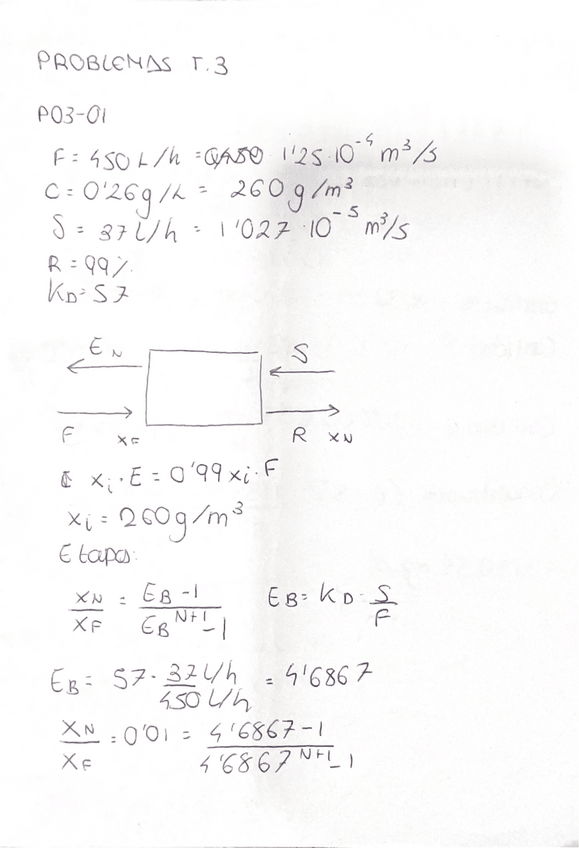 PROBLEMAS T.3
P03-01
F = 450 L/h = 1'25·10⁻⁴ m³/s
C = 0'26g/L = 260g/m³
S = 37 L/h = 1'027·10⁻⁵ m³/s
R = 99%
KD = 57
EN S
F XF R XN
xi·E = 0'99xi·F
xi = 260g/m³
Etapas:
XN/XF = (EB - 1)/(EB^(N+1) - 1) EB = KD · S/F
EB = 57 · (37L/h)/(450L/h) = 4'6867
XN/XF = 0'01 = (4'6867-1)/(4'6867^(N+1) - 1)